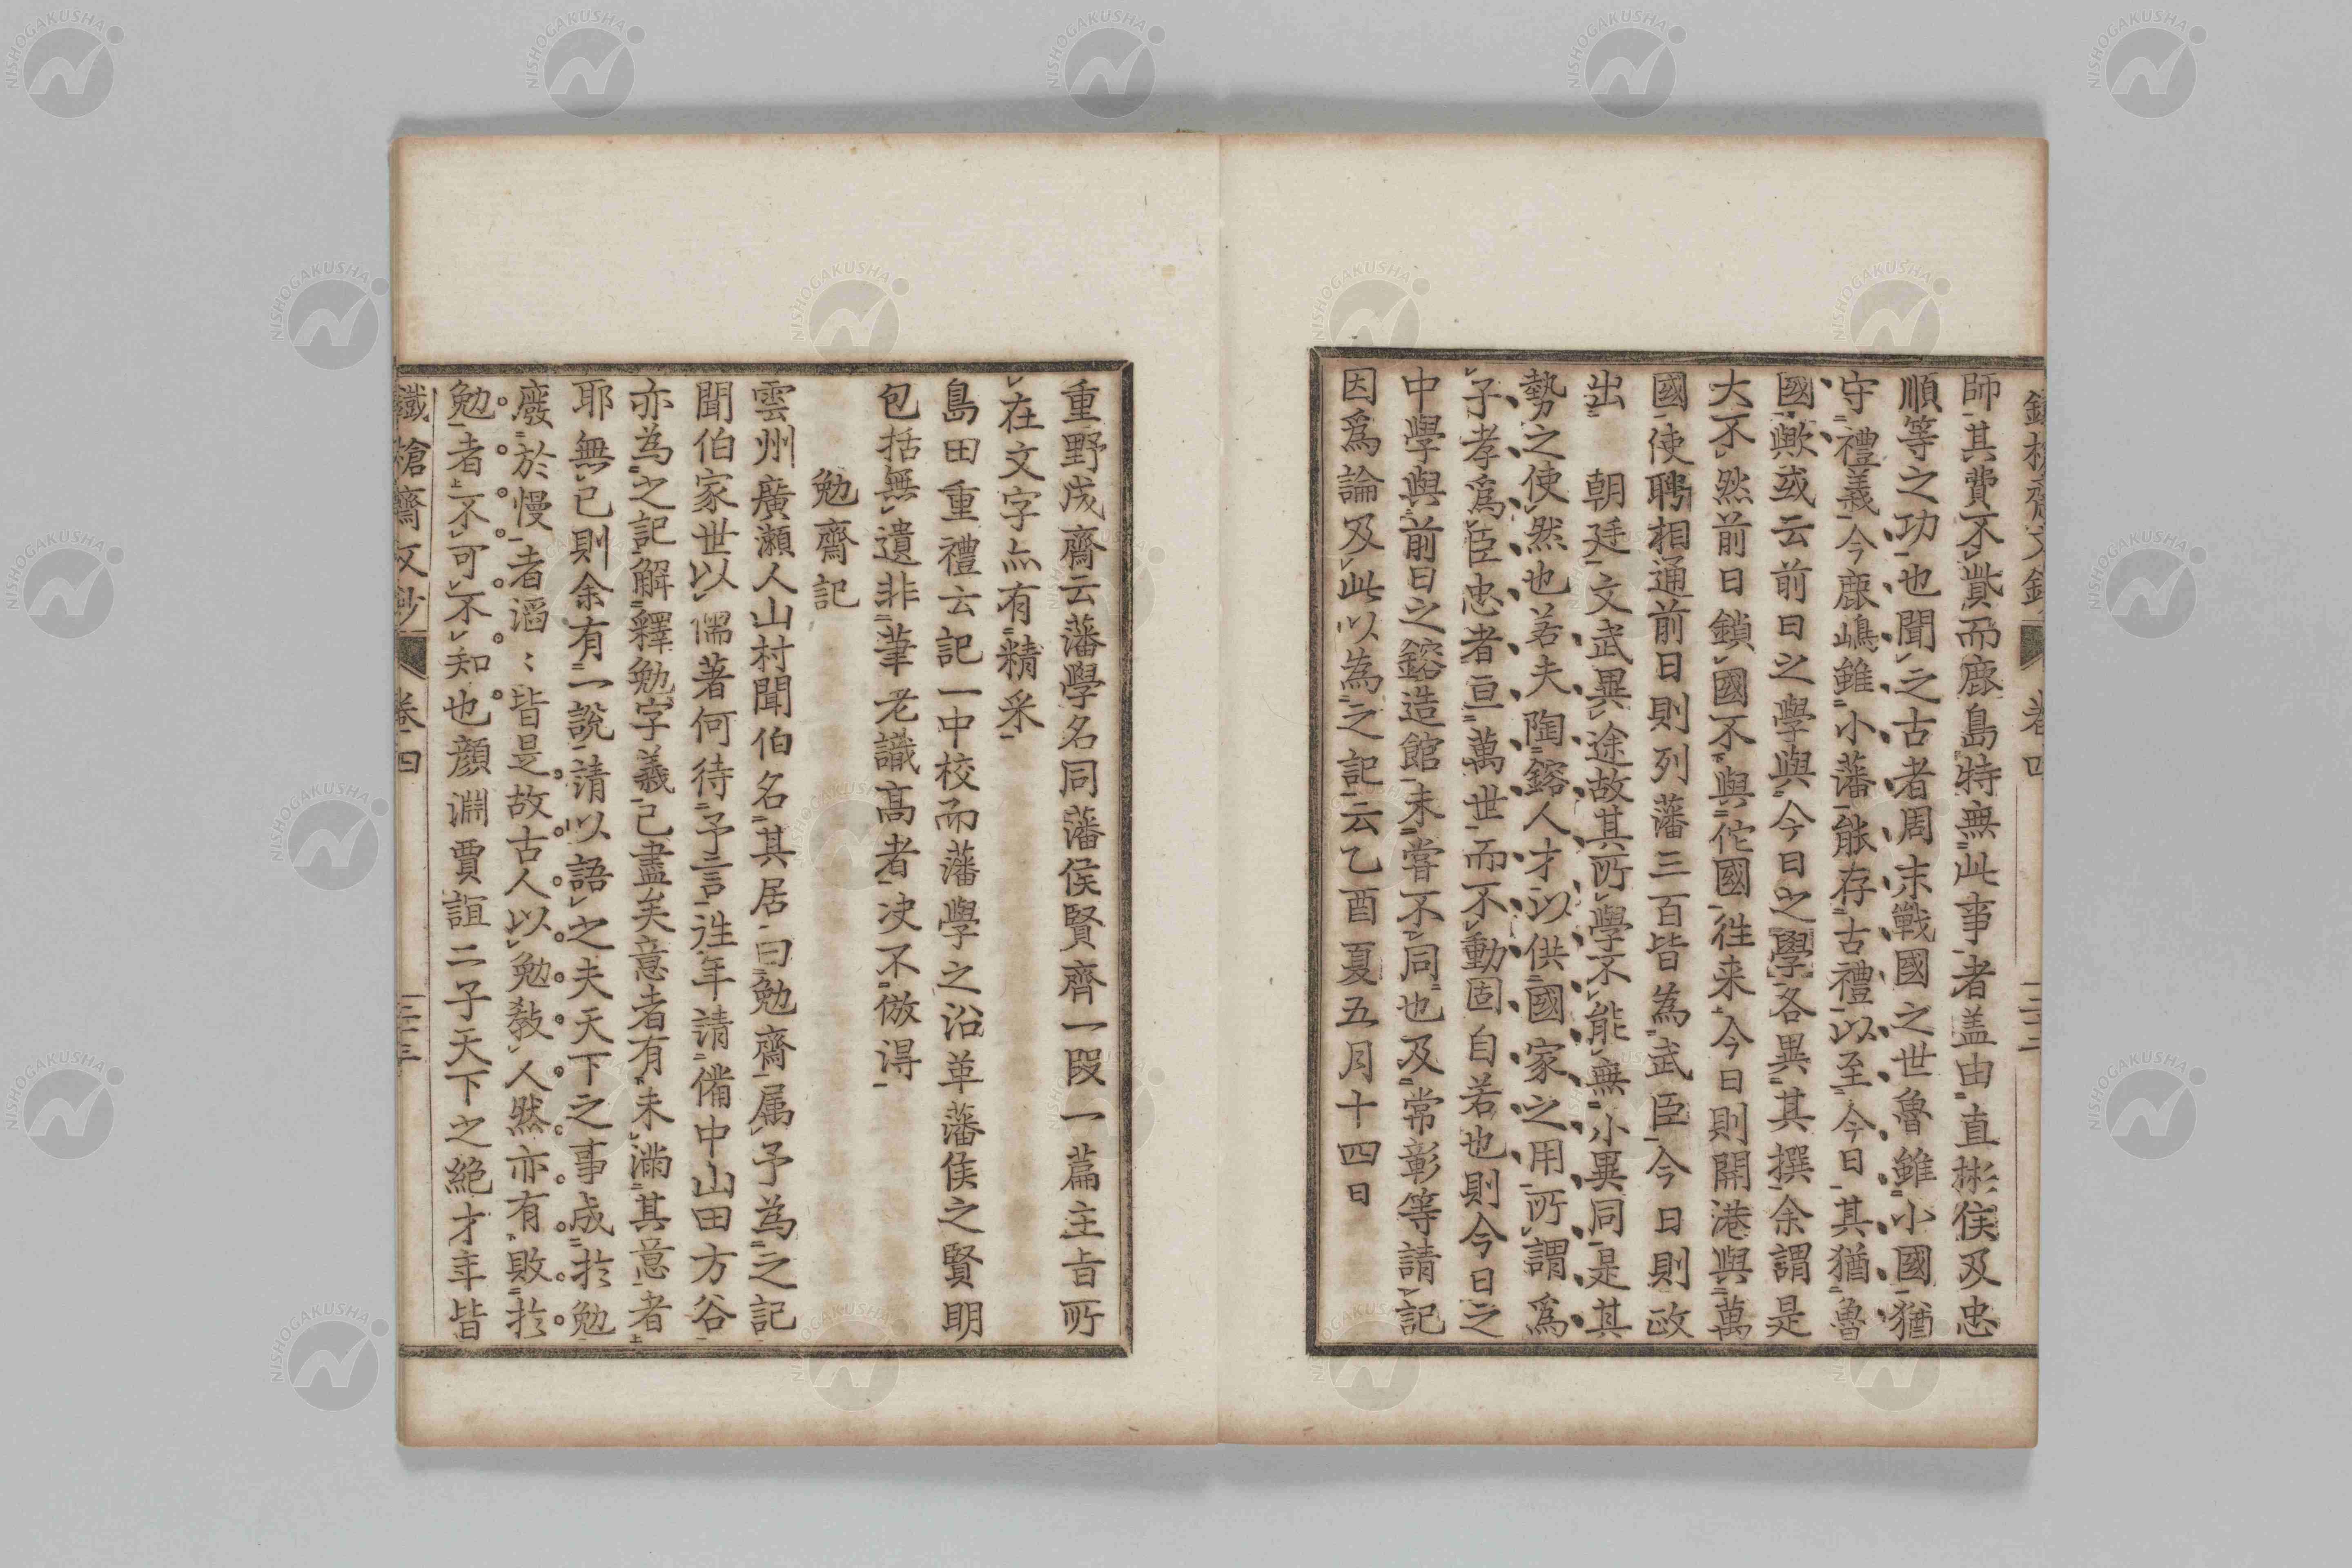 師其費不貲而鹿島特無此事者盖由直彬侯及忠
順等之功也聞之古者周末戰國之世魯雖小國猶
守禮義今鹿嶋雖小藩能存古禮以至今日其猶魯
國歟或云前日之學與今日之學各異其撰余謂是
大不然前日鎖國不與佗國往来今日則開港與萬
國使聘相通前日則列藩三百皆為武臣今日則政
出　朝廷文武異途故其所學不能無小異同是其
勢之使然也若夫陶鎔人才以供國家之用所謂爲
子孝爲臣忠者亘萬世而不動固自若也則今日之
中學與前日之鎔造館未嘗不同也及常彰等請記
因爲論及此以為之記云乙酉夏五月十四日
重野成齋云藩學名同藩侯賢齊一段一篇主旨所
在文字亦有精采
島田重禮云記一中校而藩學之沿革藩侯之賢明
包括無遺非筆老識高者决不倣得
勉齋記
雲州廣瀬人山村聞伯名其居曰勉齋属予為之記
聞伯家世以儒著何待予言徃年請備中山田方谷
亦為之記解釋勉字義已盡矣意者有未滿其意者
耶無已則余有一說請以語之夫天下之事成於勉
廢於慢者滔〻皆是故古人以勉敎人然亦有敗於
勉者不可不知也顔淵賈誼二子天下之絶才年皆
鐵槍齋文鈔　卷四　三十三
NISHOGAKUSHA